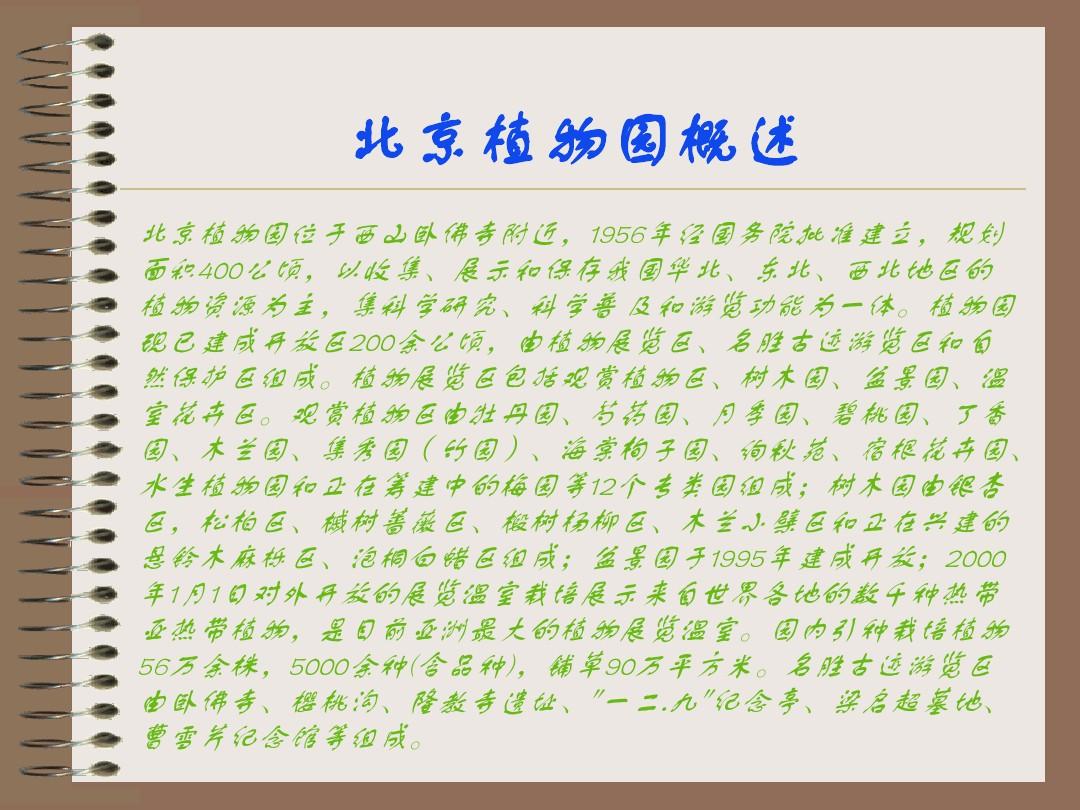 北京植物园概述
北京植物园位于西山卧佛寺附近，1956年经国务院批准建立，规划
面积400公顷，以收集、展示和保存我国华北、东北、西北地区的
植物资源为主，集科学研究、科学普及和游览功能为一体。植物园
现已建成开放区200余公顷，由植物展览区、名胜古迹游览区和自
然保护区组成。植物展览区包括观赏植物区、树木园、盆景园、温
室花卉区。观赏植物区由牡丹园、芍药园、月季园、碧桃园、丁香
园、木兰园、集秀园（竹园）、海棠栒子园、绚秋苑、宿根花卉园、
水生植物园和正在筹建中的梅园等12个专类园组成；树木园由银杏
区，松柏区、槭树蔷薇区、椴树杨柳区、木兰小檗区和正在兴建的
悬铃木麻栎区、泡桐白蜡区组成；盆景园于1995年建成开放；2000
年1月1日对外开放的展览温室栽培展示来自世界各地的数千种热带
亚热带植物，是目前亚洲最大的植物展览温室。园内引种栽培植物
56万余株，5000余种(含品种)，铺草90万平方米。名胜古迹游览区
由卧佛寺、樱桃沟、隆教寺遗址、"一二.九"纪念亭、梁启超墓地、
曹雪芹纪念馆等组成。